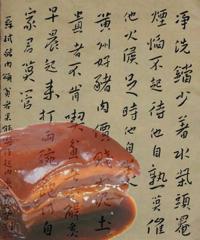 淨洗鐺少着水柴頭罨
煙焰不起待他自熟莫催
他火候足時他自美
黃州好豬肉價賤如泥土
貴者不肯喫貧者不解煮
早晨起來打兩碗飽得自
家君莫管
蘇軾豬肉頌